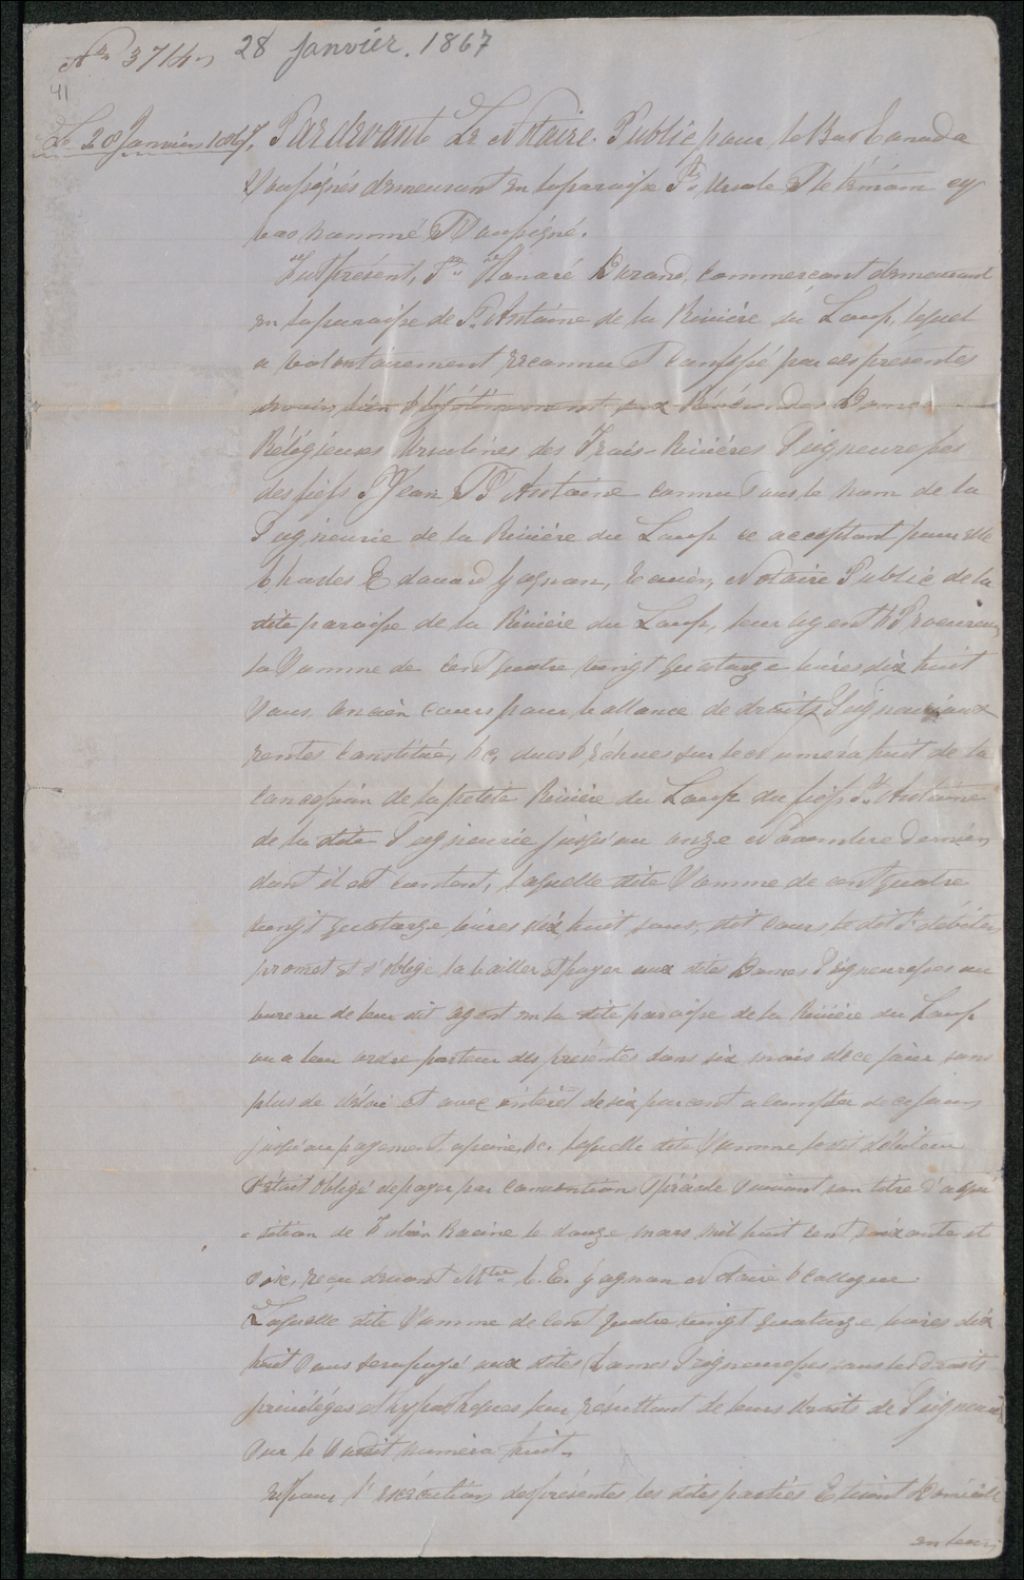 No 3714 28 Janvier. 1867
41
Le 28 Janvier 1867. Pardevant Le Notaire Public pour le Bas Canada
Soussignés demeurant en la paroisse Ste Ursule et témoin cy
bas nommé et Soussigné.
Fut présent, Sr Honoré Durand, Commerçant demeurant
en la paroisse de St Antoine de la Rivière du Loup, lequel
a volontairement reconnu et confessé par ces présentes
devoir bien et légitimement aux Révérendes Dames
Réligieuses Ursulines des Trois-Rivières Seigneuresses
des fiefs St Jean et St Antoine connu sous le nom de la
Seigneurie de la Rivière du Loup ce acceptant pour elle
Charles Edouard Gagnon, Ecuier, Notaire Public de la
dite paroisse de la Rivière du Loup, leur agent & Procureur
la Somme de Cent quatre vingt quatorze livres dix huit
Sous ancien cours pour ballance de droits Seigneuriaux
rentes constitué, &c, dues & échues sur le numéro huit de la
Concession de la petite Rivière du Loup du fief St Antoine
de la dite Seigneurie jusqu'au onze Novembre dernier
dont il est content, laquelle dite Somme de cent quatre
vingt quatorze livres dix huit sous, dit cours, le dit Sr débiteur
promet et s'oblige la bailler et payer aux dites Dames Seigneuresses au
bureau de leur dit agent en la dite paroisse de la Rivière du Loup
ou a leur ordre porteur des présentes dans six mois de ce jour sans
plus de délai et avec intérêt de six par cent a compter de ce jour
jusqu'au payement, a peine, &c. laquelle dite Somme le dit débiteur
s'était obligé de payer par convention spéciale suivant son titre d'acqui
=sition de Fabien Racine le douze mars mil huit cent soixante et
six, reçu devant Mtre C. E. Gagnon Notaire & collegue
Laquelle dite Somme de Cent quatre vingt quatorze livres dix
huit Sous sera payé aux dites Dames Seigneuresses sans les droits
priviléges et hypothèques leur résultant de leurs droits de Seigneurie
sur le susdit numéro huit.
Et pour l'exécution des présentes les dites parties Elisent domicile
en leurs